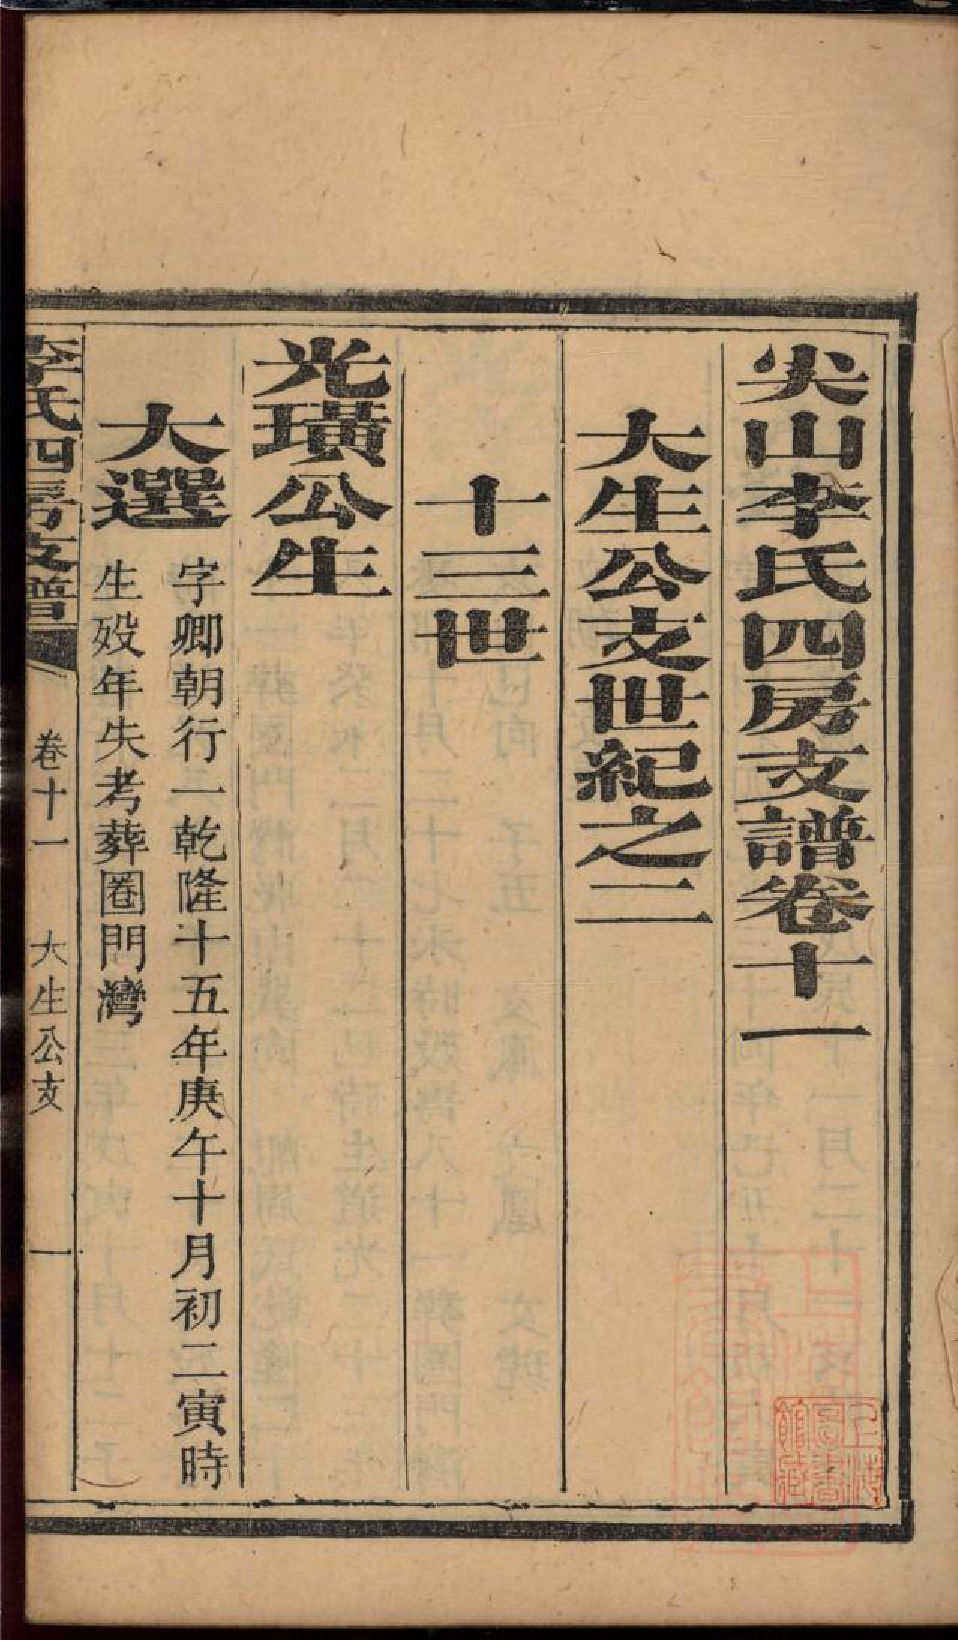 尖山李氏四房支譜卷十一
大生公支世紀之二
十三世
光璜公生
大選
字卿朝行一乾隆十五年庚午十月初二寅時
生歿年失考葬圈門灣
李氏四房支譜
卷十一
大生公支
一
上海
圖書
館藏